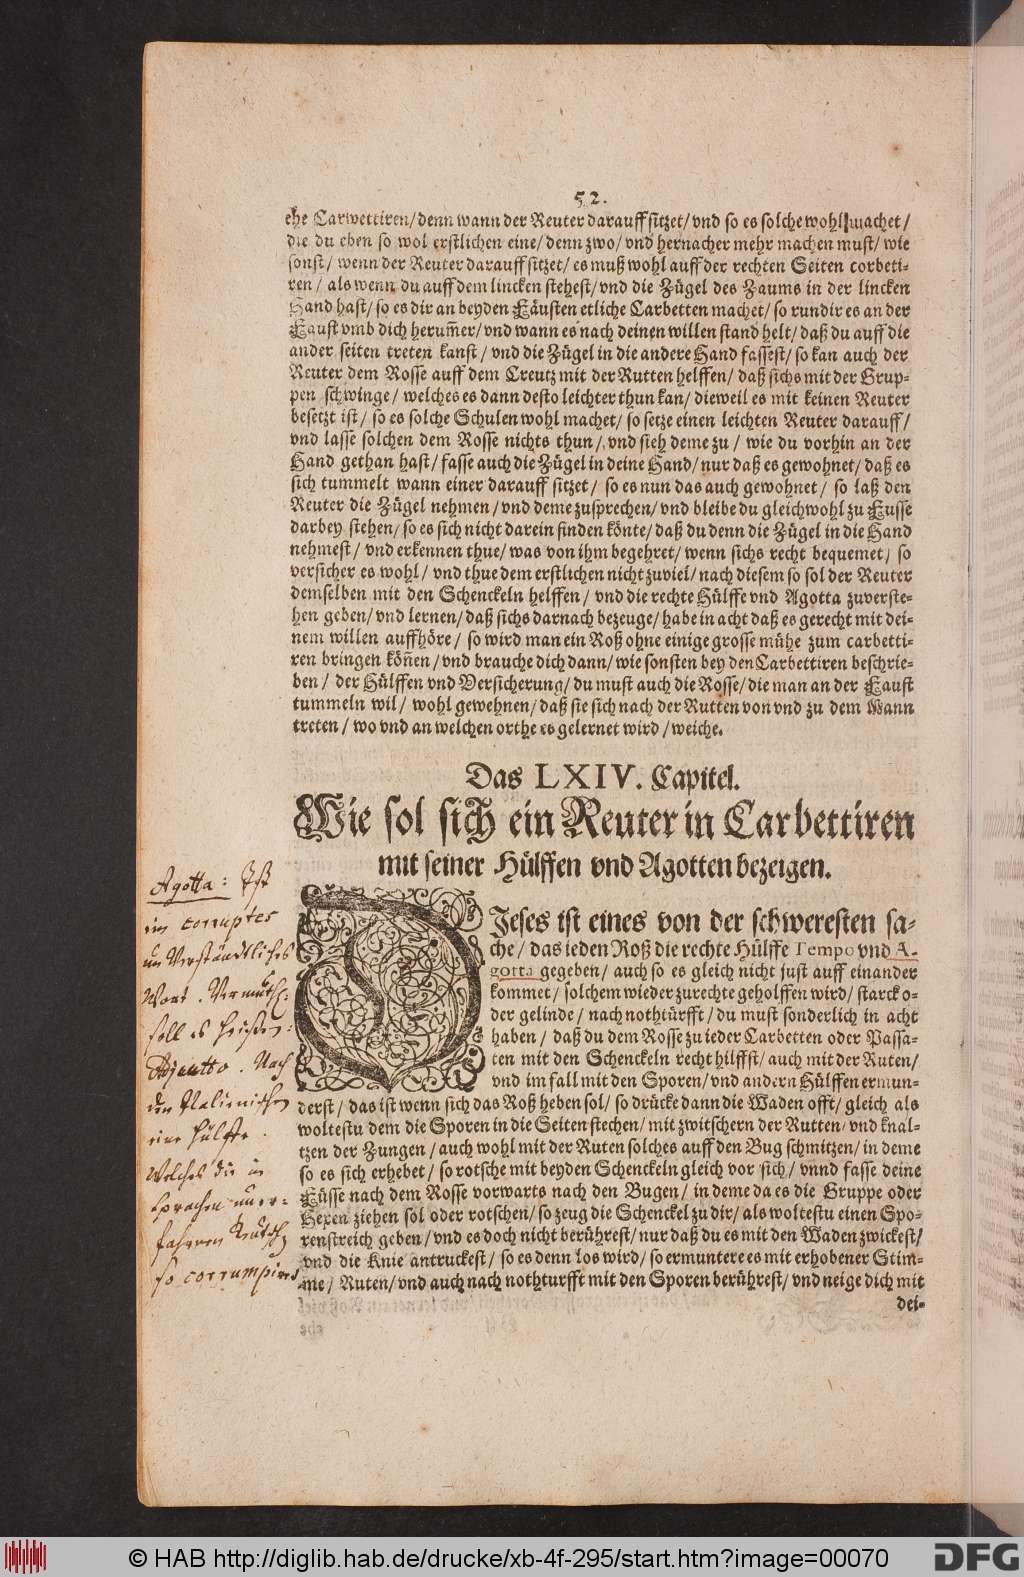 52.
ehe Carwettiren/denn wann der Reuter darauff sitzet/vnd so es solche wohl machet/
die du eben so wol erstlichen eine/denn zwo/vnd hernacher mehr machen must/wie
sonst/wenn der Reuter darauff sitzet/es muß wohl auff der rechten Seiten corbeti-
ren/als wenn du auff dem lincken stehest/vnd die Zügel des Zaums in der lincken
Hand hast/so es dir an beyden Fäusten etliche Carbetten machet/so rundir es an der
Faust vmb dich herum̄er/vnd wann es nach deinen willen stand helt/daß du auff die
ander seiten treten kanst/vnd die Zügel in die andere Hand fassest/so kan auch der
Reuter dem Rosse auff dem Creutz mit der Rutten helffen/daß sichs mit der Grup-
pen schwinge/welches es dann desto leichter thun kan/dieweil es mit keinen Reuter
besetzt ist/so es solche Schulen wohl machet/so setze einen leichten Reuter darauff/
vnd lasse solchen dem Rosse nichts thun/vnd sieh deme zu/wie du vorhin an der
Hand gethan hast/fasse auch die Zügel in deine Hand/nur daß es gewohnet/daß es
sich tummelt wann einer darauff sitzet/so es nun das auch gewohnet/so laß den
Reuter die Zügel nehmen/vnd deme zusprechen/vnd bleibe du gleichwohl zu Fusse
darbey stehen/so es sich nicht darein finden könte/daß du denn die Zügel in die Hand
nehmest/vnd erkennen thue/was von ihm begehret/wenn sichs recht bequemet/so
versicher es wohl/vnd thue dem erstlichen nicht zuviel/nach diesem so sol der Reuter
demselben mit den Schenckeln helffen/vnd die rechte Hülffe vnd Agotta zuverste-
hen geben/vnd lernen/daß sichs darnach bezeuge/habe in acht daß es gerecht mit dei-
nem willen auffhöre/so wird man ein Roß ohne einige grosse mühe zum carbetti-
ren bringen kön̄en/vnd brauche dich dann/wie sonsten bey den Carbettiren beschrie-
ben/der Hülffen vnd Versicherung/du must auch die Rosse/die man an der Faust
tummeln wil/wohl gewehnen/daß sie sich nach der Rutten von vnd zu dem Mann
treten/wo vnd an welchen orthe es gelernet wird/weiche.
Das LXIV. Capitel.
Wie sol sich ein Reuter in Carbettiren
mit seiner Hülffen vnd Agotten bezeigen.
DJeses ist eines von der schweresten sa-
che/das ieden Roß die rechte Hülffe Tempo vnd A-
gotta gegeben/auch so es gleich nicht just auff einander
kommet/solchem wieder zurechte geholffen wird/starck o-
der gelinde/nach nothtürfft/du must sonderlich in acht
haben/daß du dem Rosse zu ieder Carbetten oder Passa-
ten mit den Schenckeln recht hilffst/auch mit der Ruten/
vnd im fall mit den Sporen/vnd andern Hülffen ermun-
derst/das ist wenn sich das Roß heben sol/so drücke dann die Waden offt/gleich als
woltestu dem die Sporen in die Seiten stechen/mit zwitschern der Rutten/vnd knal-
tzen der Zungen/auch wohl mit der Ruten solches auff den Bug schmitzen/in deme
so es sich erhebet/so rotsche mit beyden Schenckeln gleich vor sich/vnnd fasse deine
Füsse nach dem Rosse vorwarts nach den Bugen/in deme da es die Gruppe oder
Hexen ziehen sol oder rotschen/so zeug die Schenckel zu dir/als woltestu einen Spo-
renstreich geben/vnd es doch nicht berührest/nur daß du es mit den Waden zwickest/
vnd die Knie antruckest/so es denn los wird/so ermuntere es mit erhobener Stim-
me/Ruten/vnd auch nach nothturfft mit den Sporen berührest/vnd neige dich mit
dei-
Agotta: Ist
ein corruptes
un Verständliches
Wort. Vermuthl:
soll es heißen:
Adjutto. Nach
den Italienischen
eine Hülffe.
Welches die in
Sprachen uner-
fahrnen
so corrumpiret
© HAB http://diglib.hab.de/drucke/xb-4f-295/start.htm?image=00070
DFG